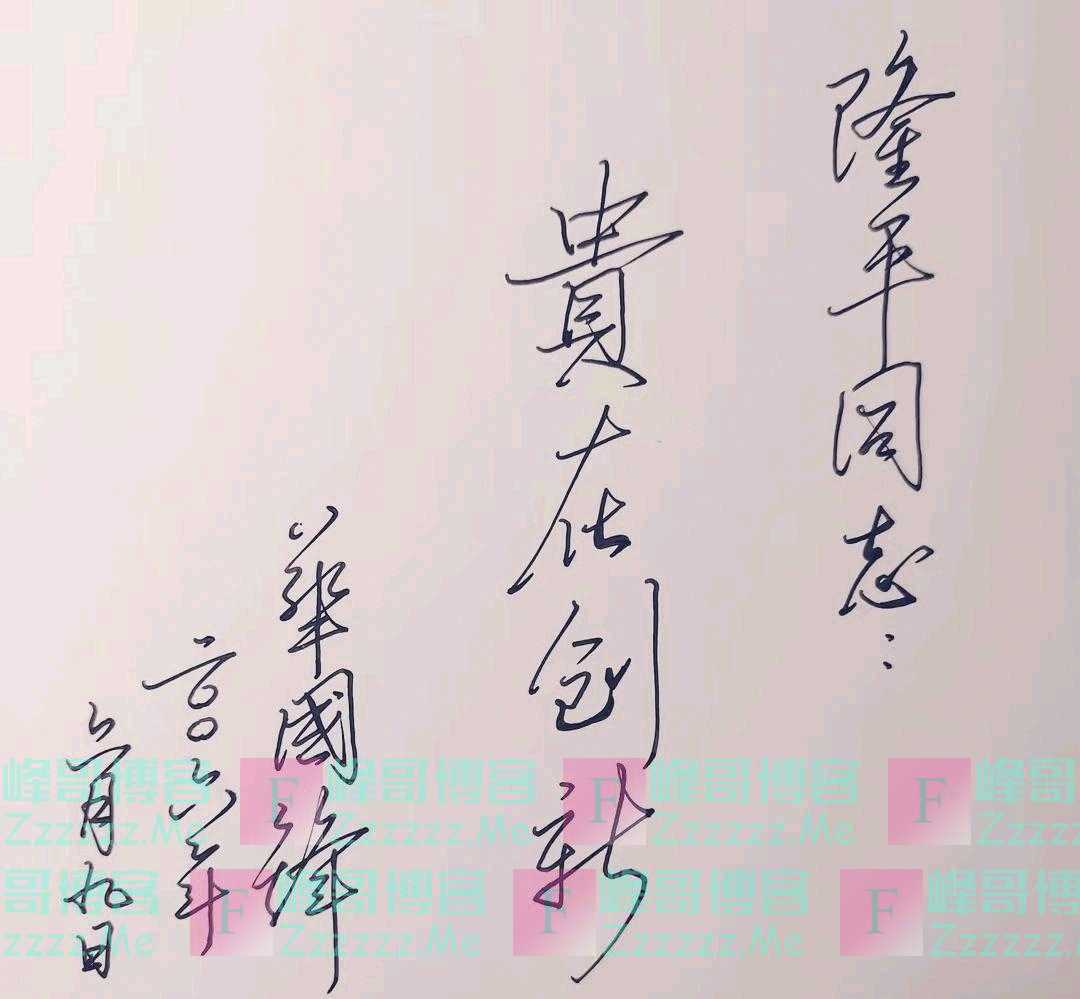 隆平同志：
貴在创新
華國鋒
二〇〇六年
六月九日
峰哥博客 F 峰哥博客 F 峰哥博客 F 峰哥
Zzzzzz.Me Zzzzzz.Me Zzzzzz.Me Zzzz
哥博客 F 峰哥博客 F 峰哥博客 F 峰哥博
zzzz.Me Zzzzzz.Me Zzzzzz.Me Zzzzzz.M